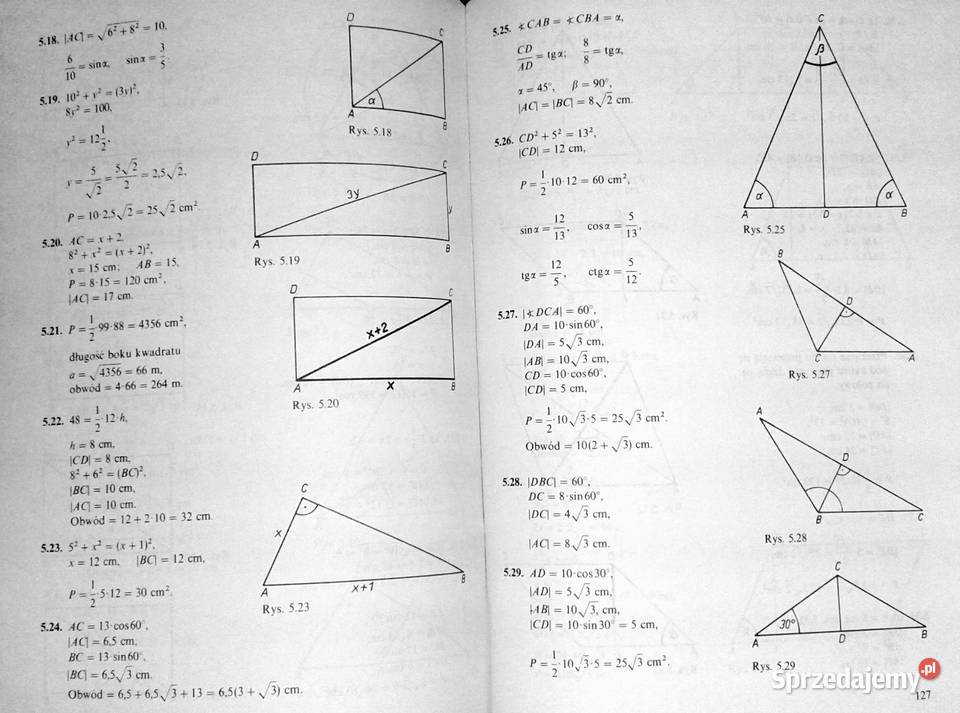 5.18. |AC| = √6² + 8² = 10,
6/10 = sinα, sinα = 3/5.
5.19. 10² + y² = (3y)²,
8y² = 100,
y² = 12 1/2,
y = 5/√2 = 5√2/2 = 2,5√2,
P = 10·2,5√2 = 25√2 cm².
5.20. AC = x + 2,
8² + x² = (x + 2)²,
x = 15 cm; AB = 15,
P = 8·15 = 120 cm²,
|AC| = 17 cm.
5.21. P = 1/2·99·88 = 4356 cm²,
długość boku kwadratu
a = √4356 = 66 m,
obwód = 4·66 = 264 m.
5.22. 48 = 1/2·12·h,
h = 8 cm,
|CD| = 8 cm,
8² + 6² = (BC)²,
|BC| = 10 cm,
|AC| = 10 cm.
Obwód = 12 + 2·10 = 32 cm.
5.23. 5² + x² = (x + 1)²,
x = 12 cm, |BC| = 12 cm,
P = 1/2·5·12 = 30 cm².
5.24. AC = 13·cos60°,
|AC| = 6,5 cm,
BC = 13·sin60°,
|BC| = 6,5√3 cm.
Obwód = 6,5 + 6,5√3 + 13 = 6,5(3 + √3) cm.
D
C
α
A
B
Rys. 5.18
D
C
3y
y
A
B
Rys. 5.19
D
C
x+2
A
x
B
Rys. 5.20
C
x
A
x+1
B
Rys. 5.23
5.25. ∢CAB = ∢CBA = α,
CD/AD = tgα; 8/8 = tgα,
α = 45°, β = 90°,
|AC| = |BC| = 8√2 cm.
5.26. CD² + 5² = 13²,
|CD| = 12 cm,
P = 1/2·10·12 = 60 cm²,
sinα = 12/13, cosα = 5/13,
tgα = 12/5, ctgα = 5/12.
5.27. |∢DCA| = 60°,
DA = 10·sin60°,
|DA| = 5√3 cm,
|AB| = 10√3 cm,
CD = 10·cos60°,
|CD| = 5 cm,
P = 1/2·10√3·5 = 25√3 cm².
Obwód = 10(2 + √3) cm.
5.28. |DBC| = 60°,
DC = 8·sin60°,
|DC| = 4√3 cm,
|AC| = 8√3 cm.
5.29. AD = 10·cos30°,
|AD| = 5√3 cm,
|AB| = 10√3, cm,
|CD| = 10·sin30° = 5 cm,
P = 1/2·10√3·5 = 25√3 cm².
C
β
α
α
A
D
B
Rys. 5.25
B
D
C
A
Rys. 5.27
A
D
B
C
Rys. 5.28
C
30°
A
D
B
Rys. 5.29
127
Sprzedajemy.pl